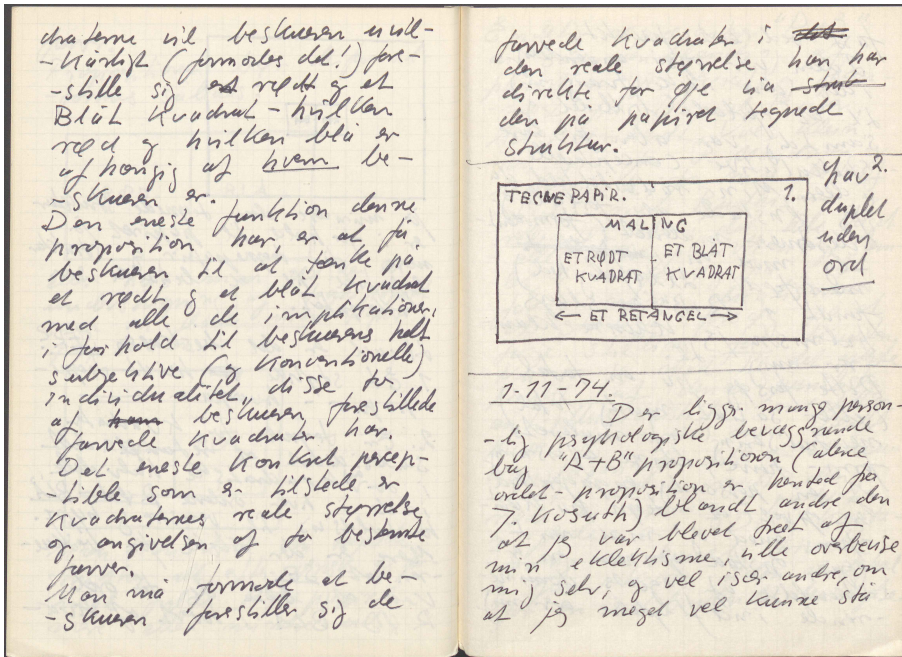 draterne vil beskueren uvil-
-kårligt (formodes det!) fore-
-stille sig et rødt og et
Blåt Kvadrat - hvilken
rød og hvilken blå er
afhængig af hvem be-
-skueren er.
Den eneste funktion denne
proposition har, er at få
beskueren til at tænke på
et rødt og et blåt Kvadrat
med alle de implikationer,
i forhold til beskuerens helt
subjektive (og Konventionelle)
individualitet, disse to
af beskueren forestillede
farvede Kvadrater har.
Det eneste Konkret percep-
-tible som er tilstede er
Kvadraternes reale størrelse
og angivelsen af to bestemte
farver.
Man må formode at be-
-skueren forestiller sig de
farvede Kvadrater i det
den reale størrelse han har
direkte for øje via struk
den på papiret tegnede
struktur.
TEGNEPAPIR. 1.
MALING
ET RØDT KVADRAT
ET BLÅT KVADRAT
← ET RETANGEL →
hav 2.
duplet
uden
ord
1-11-74.
Der ligger mange person-
-lig psykologiske bevæggrunde
bag "A+B" propositionen (alene
ordet - proposition er hentet fra
J. Kosuth) blandt andre den
at jeg var blevet træt af
min eklektisme, ville overbevise
mig selv, og vel især andre, om
at jeg meget vel kunne stå